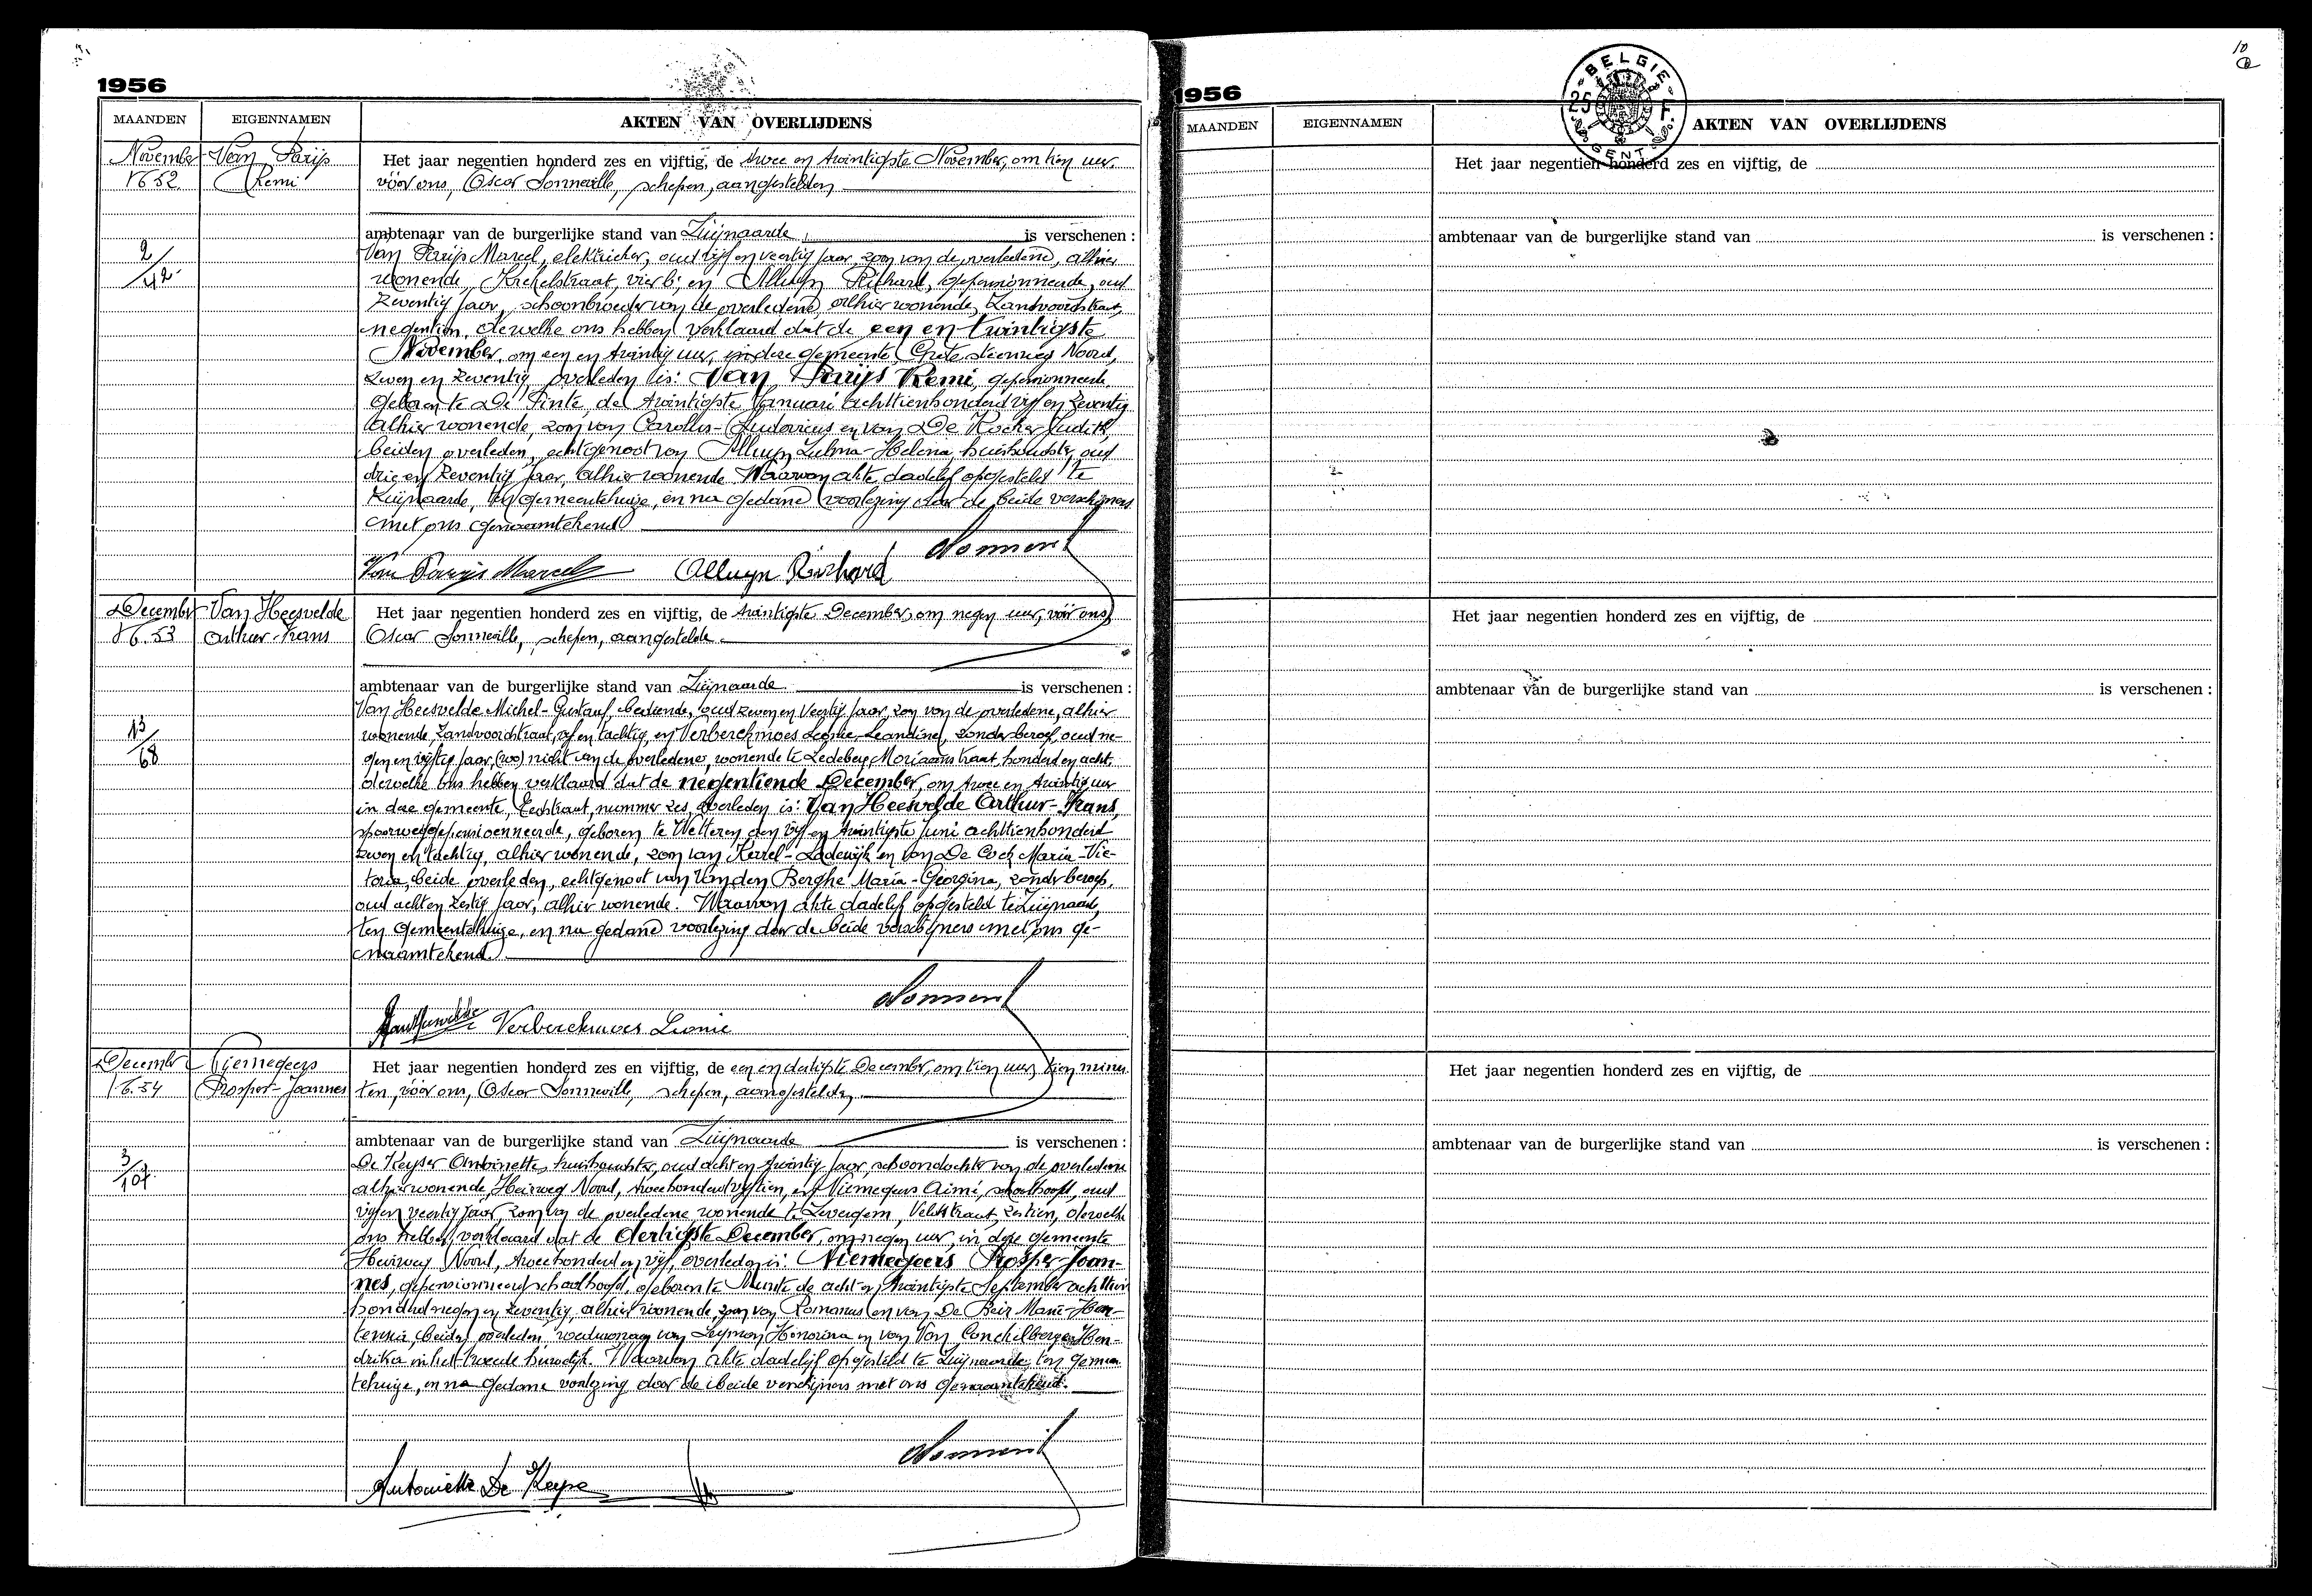 1956
MAANDEN EIGENNAMEN AKTEN VAN OVERLIJDENS
November Van Parijs Het jaar negentien honderd zes en vijftig, de twee en twintigste November, om tien uur,
N° 52 Remi vóór ons, Oscar Sonneville, schepen, aangestelden
ambtenaar van de burgerlijke stand van Zwijnaarde, is verschenen :
2/42 Van Parijs Marcel, elektrieker, oud vijf en veertig jaar, zoon van de overledene, alhier
wonende, Krekelstraat, vier b; en Alluyn Richard, gepensionneerde, oud
zeventig jaar, schoonbroeder van de overledene, alhier wonende, Zandvoordestraat,
negentien, dewelke ons hebben verklaard dat de een en twintigste
November, om een en twintig uur, in deze gemeente, Grote steenweg Noord,
zeven en zeventig, overleden is: Van Parijs Remi, gepensionneerde,
geboren te De Pinte, de twintigste Januari achttienhonderd vijf en zeventig
alhier wonende, zoon van Carolus-Ludovicus en van De Kocker Judith,
beiden overleden, echtgenoot van Alluyn Zulma-Helena, huishoudster, oud
drie en zeventig jaar, alhier wonende. Waarvan akte dadelijk opgesteld te
Zwijnaarde, ten gemeentehuize, en na gedane voorlezing door de beide verschijners
met ons genaamtekend
Van Parijs Marcel Alluyn Richard Sonnevil
December Van Heesvelde Het jaar negentien honderd zes en vijftig, de twintigste December, om negen uur, vóór ons,
N° 53 Arthur-Frans Oscar Sonneville, schepen, aangestelde
ambtenaar van de burgerlijke stand van Zwijnaarde is verschenen :
Van Heesvelde Michel-Gustaaf, bediende, oud zeven en veertig jaar, zoon van de overledene, alhier
13/68 wonende, Zandvoordestraat, vijf en tachtig, en Verberckmoes Leonie-Leandine, zonder beroep, oud ne-
gen en vijftig jaar, nicht van de overledene, wonende te Ledeberg, Moriaanstraat, honderd en acht
dewelke ons hebben verklaard dat de negentiende December, om twee en twintig uur
in deze gemeente, Eedstraat, nummer zes, overleden is: Van Heesvelde Arthur-Frans,
spoorweggepensioenneerde, geboren te Wetteren, den vijf en twintigste Juni achttienhonderd
zeven en tachtig, alhier wonende, zoon van Karel-Lodewijk en van De Cock Maria-Vic-
toria, beide overleden, echtgenoot van Vanden Berghe Maria-Georgina, zonder beroep,
oud acht en zestig jaar, alhier wonende. Waarvan akte dadelijk opgesteld te Zwijnaarde,
ten gemeentehuize, en na gedane voorlezing door de beide verschijners met ons ge-
naamtekend.
Sonnevil
VanHeesvelde Verberckmoes Leonie
December Niemegeers Het jaar negentien honderd zes en vijftig, de een en dertigste December, om tien uur, tien minu-
N° 54 Prosper-Joannes ten, vóór ons, Oscar Sonneville, schepen, aangestelden
ambtenaar van de burgerlijke stand van Zwijnaarde is verschenen :
3/107 De Keyser Antoinette, huishoudster, oud acht en twintig jaar, schoondochter van de overledene
alhier wonende, Heirweg Noord, tweehonderd vijftien, en Niemegeers Aimé, schoolhoofd, oud
vijf en veertig jaar, zoon van de overledene wonende te Zevergem, Veldstraat, zestien, dewelke
ons hebben verklaard dat de dertigste December, om negen uur, in deze gemeente
Heirweg Noord, tweehonderd en vijf, overleden is: Niemegeers Prosper-Joan-
nes, gepensionneerd schoolhoofd, geboren te Munte de acht en twintigste September achttien
honderd negen en zeventig, alhier wonende, zoon van Romanus en van De Beir Marie-Hor-
tensia, beiden overleden, weduwnaar van Leyman Honorina en van Van Conckelberge Hen-
drika in het tweede huwelijk. Waarvan akte dadelijk opgesteld te Zwijnaarde, ten gemeen-
tehuize, en na gedane voorlezing door de beide verschijners met ons genaamtekend.
Sonnevil
Antoinette De Keyse
10
1956
BELGIE
25 F
GENT
MAANDEN EIGENNAMEN AKTEN VAN OVERLIJDENS
Het jaar negentien honderd zes en vijftig, de
ambtenaar van de burgerlijke stand van is verschenen :
Het jaar negentien honderd zes en vijftig, de
ambtenaar van de burgerlijke stand van is verschenen :
Het jaar negentien honderd zes en vijftig, de
ambtenaar van de burgerlijke stand van is verschenen :